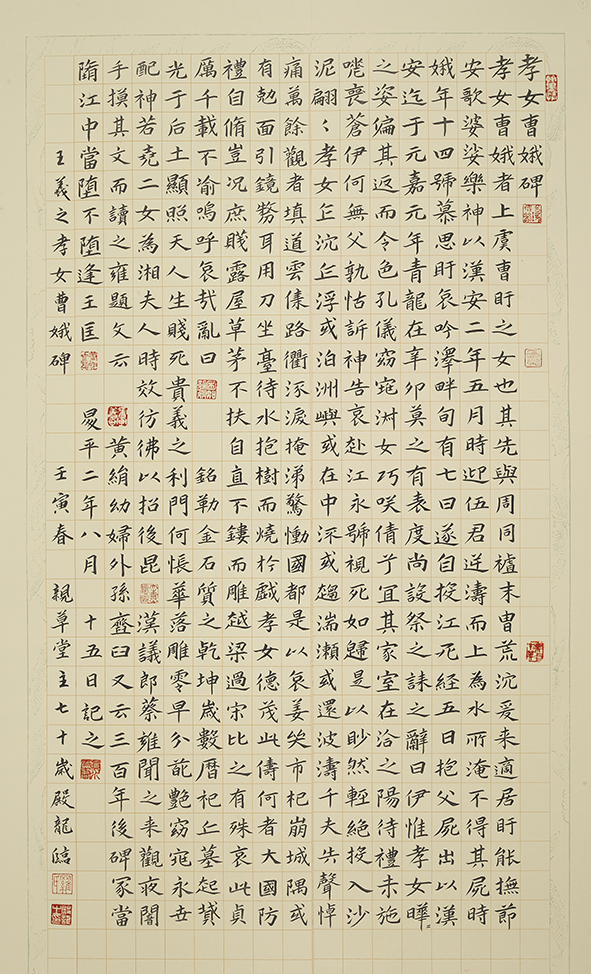 孝女曹娥碑
孝女曹娥者上虞曹盱之女也其先與周同祖末胄荒沉爰来適居盱能撫節
安歌婆娑樂神以漢安二年五月時迎伍君逆濤而上為水所淹不得其屍時
娥年十四號慕思盱哀吟澤畔旬有七日遂自投江死經五日抱父屍出以漢
安迄于元嘉元年青龍在辛卯莫之有表度尚設祭之誄之辭曰伊惟孝女曄〻
之姿偏其返而令色孔儀窈窕淑女巧咲倩兮宜其家室在洽之陽待禮未施
嗟喪蒼伊何無父孰怙訴神告哀赴江永號視死如歸是以眇然輕絕投入沙
泥翩〻孝女乍沉乍浮或泊洲嶼或在中流或趨湍瀨或還波濤千夫失聲悼
痛萬餘觀者填道雲集路衢流淚掩涕驚慟國都是以哀姜哭市杞崩城隅或
有剋面引鏡剺耳用刀坐臺待水抱樹而燒於戲孝女德茂此儔何者大國防
禮自脩豈況庶賤露屋草茅不扶自直不鏤而雕越梁過宋比之有殊哀此貞
厲千載不渝嗚呼哀哉亂曰 銘勒金石質之乾坤歲數曆祀丘墓起墳
光于后土顯照天人生賤死貴義之利門何悵華落雕零早分葩艷窈窕永世
配神若堯二女為湘夫人時效彷彿以招後昆 漢議郎蔡雍聞之来觀夜闇
手摸其文而讀之雍題文云 黃絹幼婦外孫齏臼又云三百年後碑冢當
隋江中當墮不墮逢王匡 昇平二年八月 十五日記之
王羲之孝女曹娥碑 壬寅春 親草堂主七十歲殿龍臨